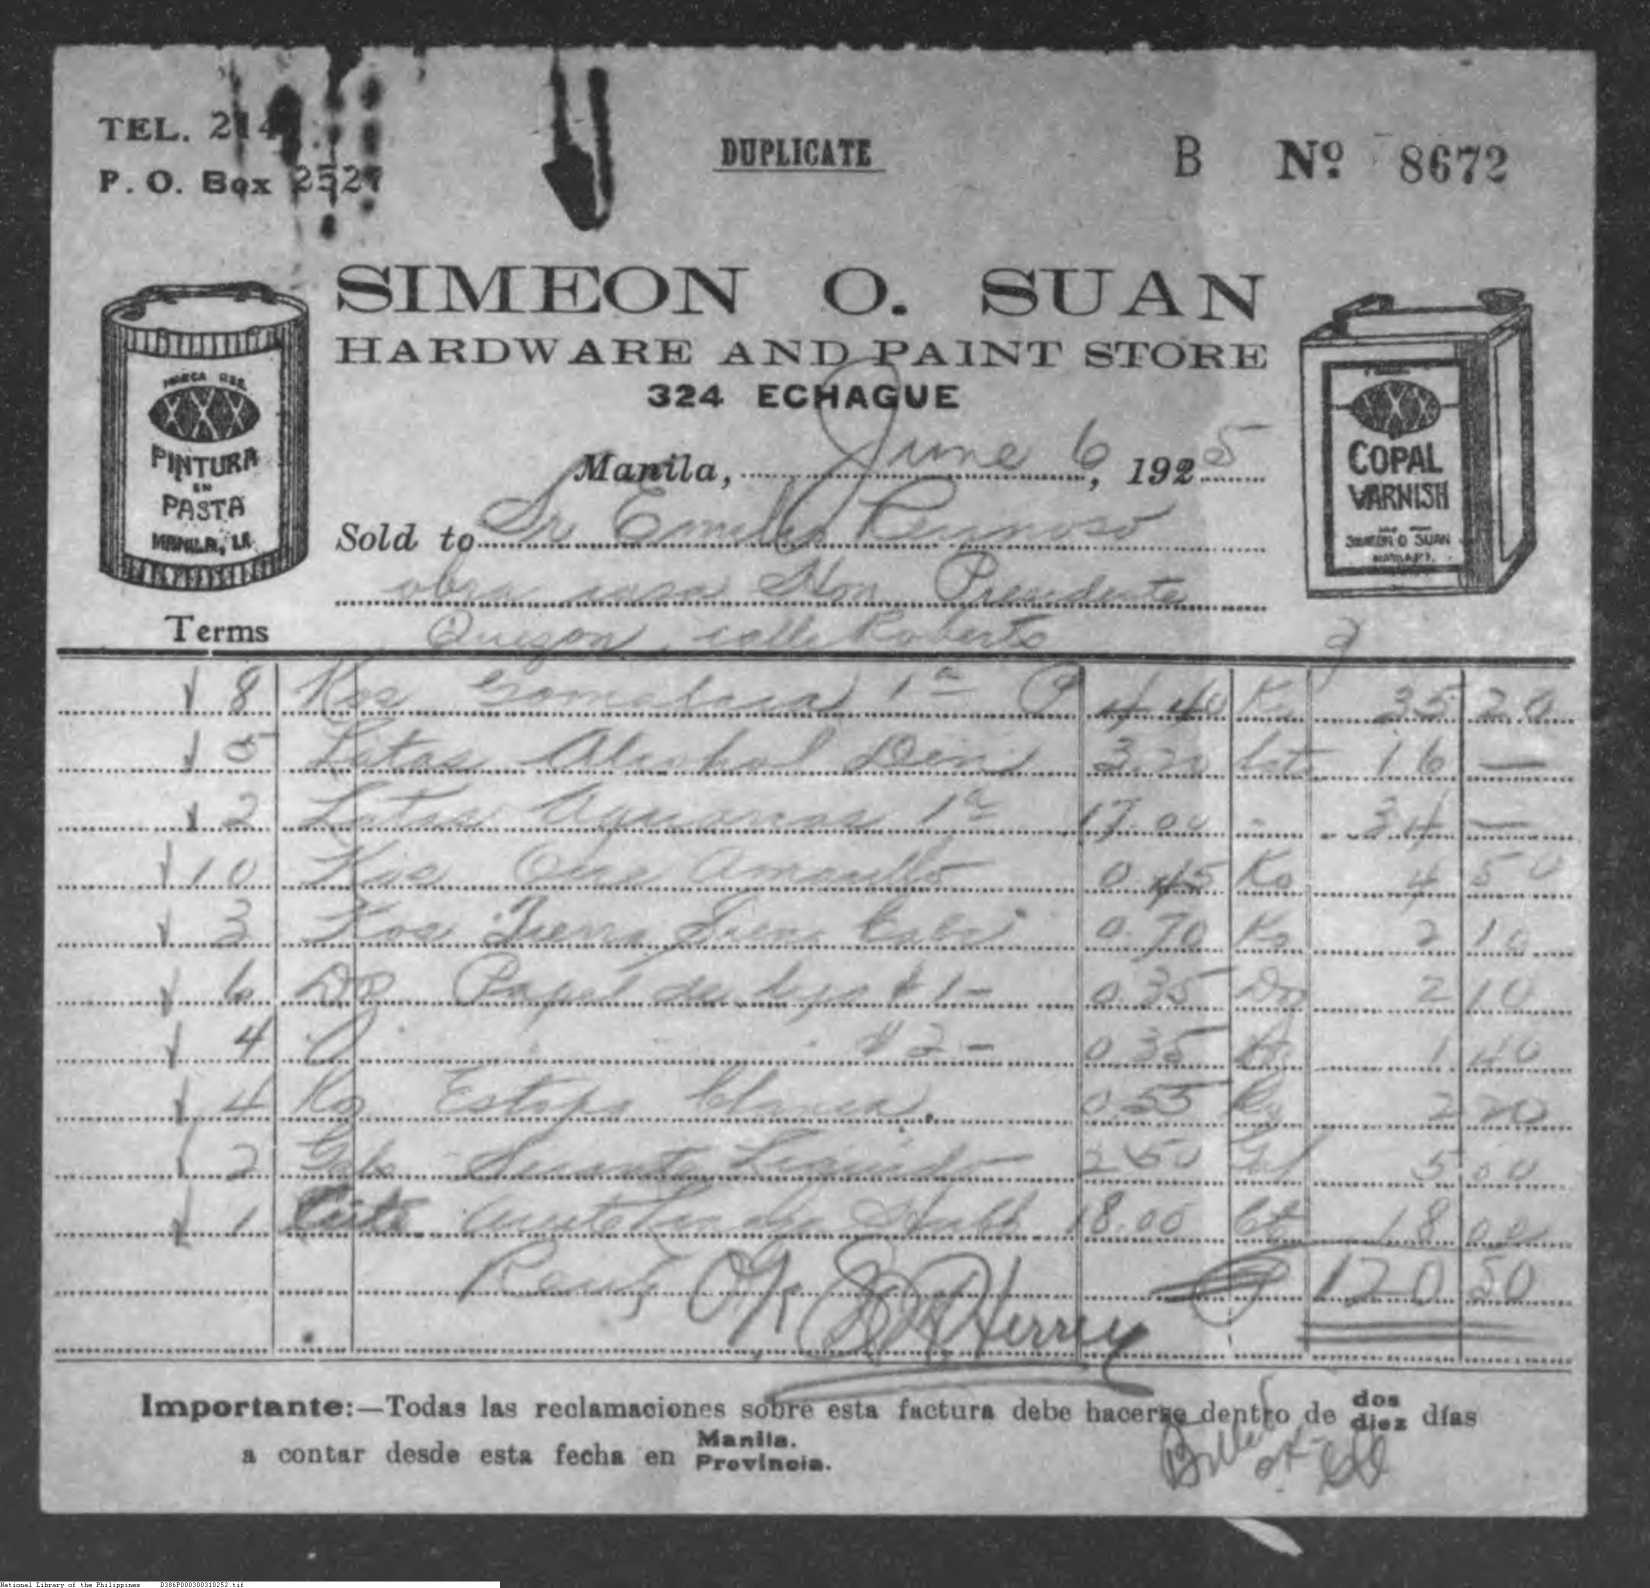 TEL. 214
P. O. Box 2527
DUPLICATE
B Nº 8672
SIMEON O. SUAN
HARDWARE AND PAINT STORE
324 ECHAGUE
MARCA REG.
XXX
PINTURA
EN
PASTA
MANILA, I.F.
XXX
COPAL
VARNISH
SIMEON O SUAN
MANILA, P.I.
Manila, June 6, 1925
Sold to Sr Emilio Reynoso
obra casa Hon. Presidente
Quezon, calle Roberts
Terms
8 Kos Gomalaca 1ª P 4.40 Ko 35 20
5 Latas Alcohol Den 3.20 lata 16 —
2 Latas Aguarras 1ª 17.00 - 34 —
10 Kos Ocre Amarillo 0.45 Ko 4 50
3 Kos Tierra Siena 0.70 Ko 2 10
6 Dos Papel de lija # 1 - 0.35 Do 2 10
4 # 2 - 0.35 Do 1 40
4 Ko Estopa blanca. 0.55 Ko 2 20
2 Gals Secante Liquido 2.50 Gal 5.00
1 aceite linaza 18.00 18 00
O.K. 120 50
Importante:—Todas las reclamaciones sobre esta factura debe hacerse dentro de dos diez días
a contar desde esta fecha en Manila. Provincia.
Billed
OK
National Library of the Philippines D386P000300310252.tif